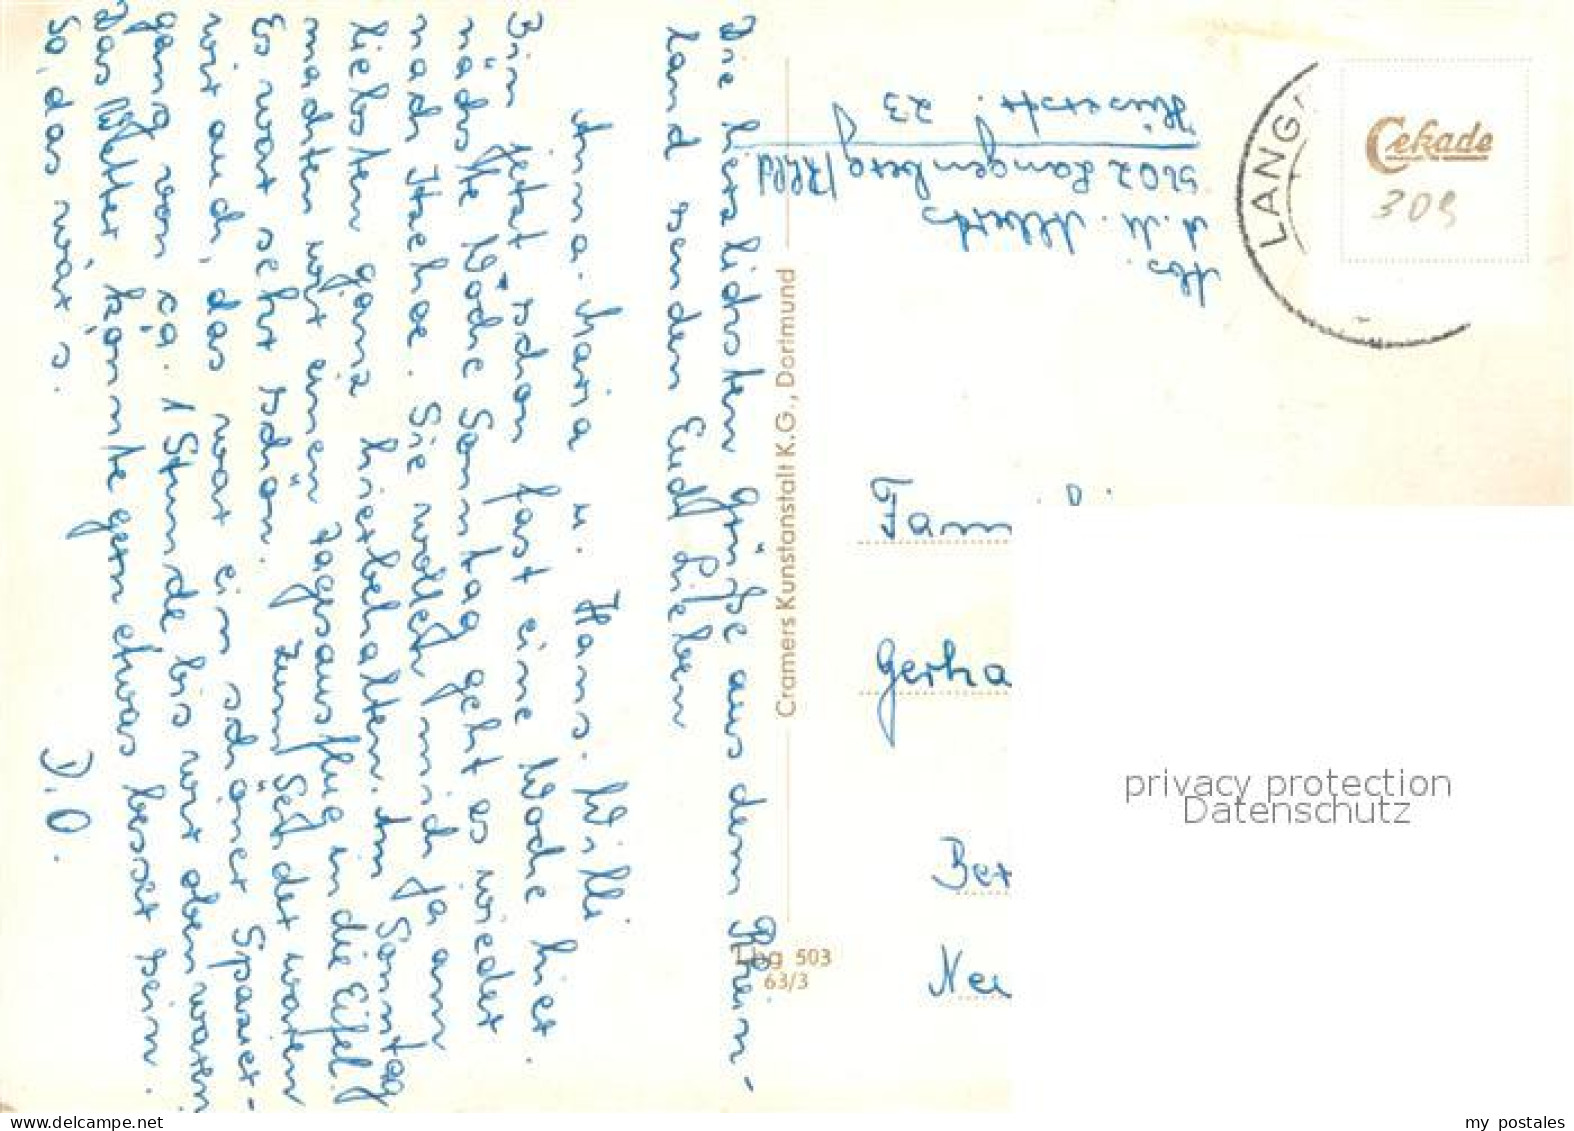 Die herzlichsten Grüße aus dem Rhein-
land senden Euch Lieben
Anna-Maria u. Hans-Willi
Bin jetzt schon fast eine Woche hier.
nächste Woche Sonntag geht es wieder
nach Itzehoe. Sie wollen mich ja am
liebsten ganz hierbehalten. Am Sonntag
machten wir einen Tagesausflug in die Eifel.
Es war sehr schön. Zum waren
wir auch, das war ein schöner Spazier-
gang von ca. 1 Stunde bis wir oben waren
Das Wetter könnte gern etwas besser sein.
So, das wär's.
D.O.
Cramers Kunstanstalt K.G., Dortmund
Lbg 503
63/3
Abs.
A. M. Alberts
5602 Langenberg/Rhld
Hüserstr. 23
LANG
Cekade
309
Fam
Gerha
Ber
Neu
privacy protection
Datenschutz
www.delcampe.net
my_postales